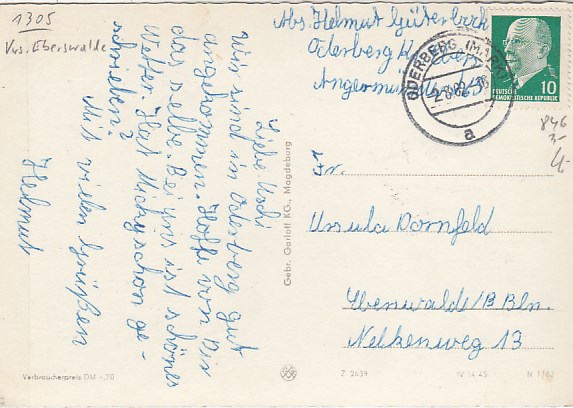 1305
Krs. Eberswalde
Abs. Helmut Güterbock
Oderberg
Angermünder
ODERBERG (MARK)
a
DEUTSCHE
DEMOKRATISCHE REPUBLIK
10
846
3,-
4,-
Liebe Uschi
Wir sind in Oderberg gut
angekommen. Hoffe von Dir
das selbe. Bei uns ist schönes
Wetter. Hat Micky schon ge-
schrieben?
Mit vielen Grüßen
Helmut
Gebr. Garloff KG., Magdeburg
Fr.
Ursula Dornfeld
Ebenwalde/B Bln.
Nelkenweg 13
Verbraucherpreis DM -,20
Z 2639
IV 14 45